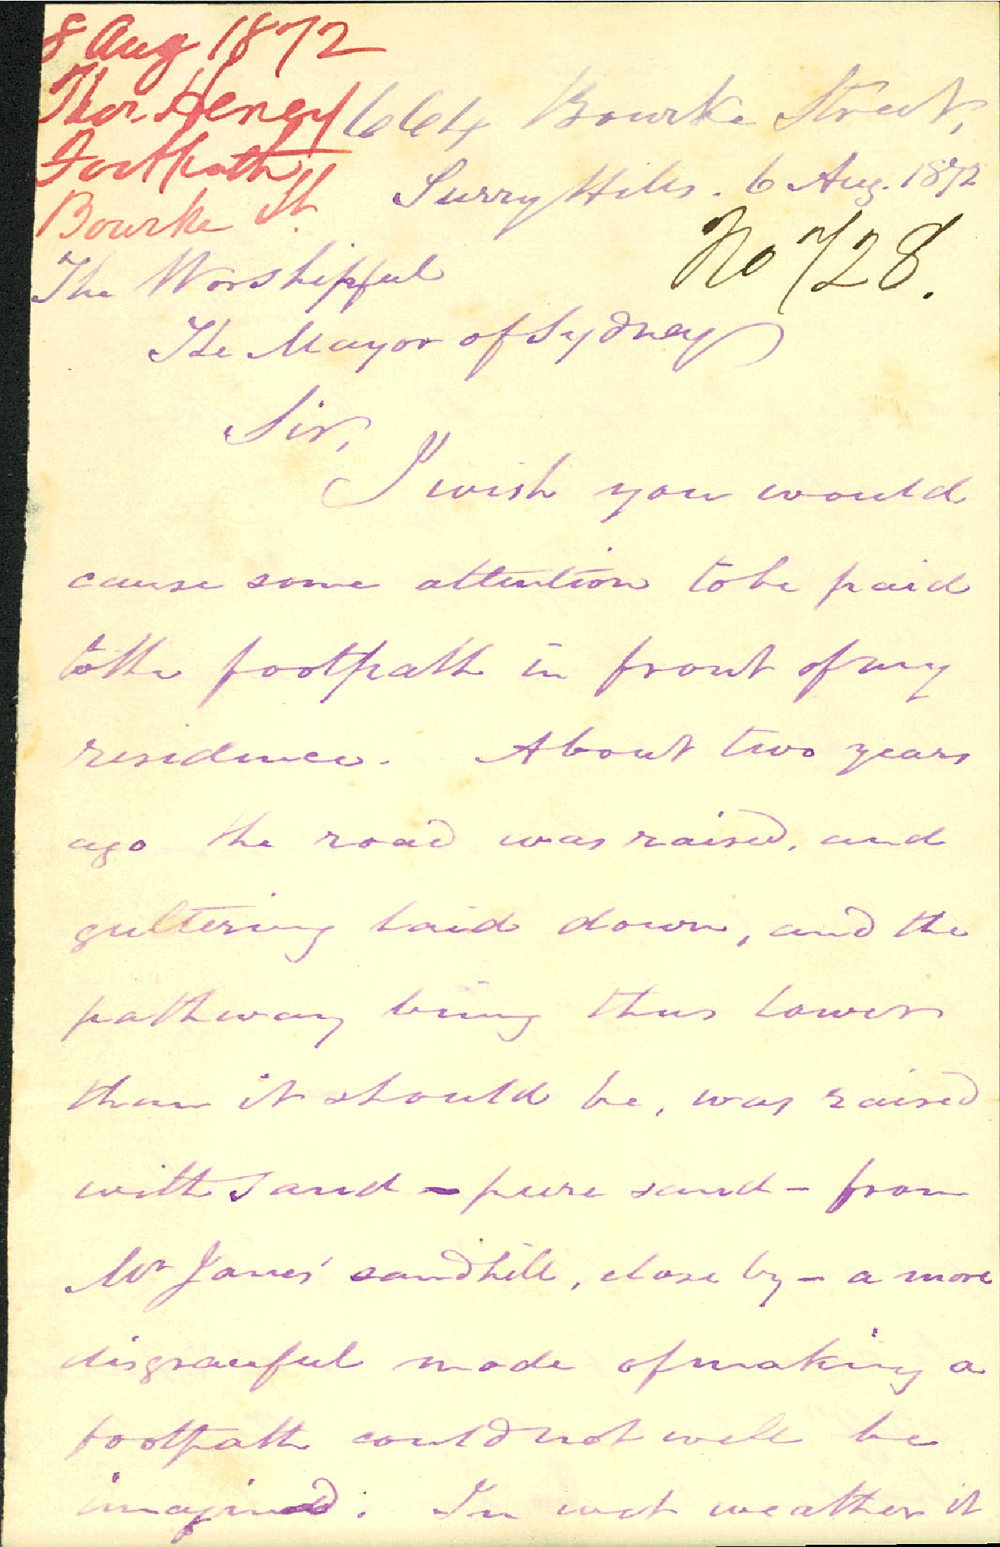 8 Aug 1872
Thos. Heney
Footpath
Bourke St.
664 Bourke Street,
Surry Hills. 6 Aug. 1872
No 728.
The Worshipful
The Mayor of Sydney
Sir,
I wish you would
cause some attention to be paid
to the footpath in front of my
residence. About two years
ago the road was raised, and
guttering laid down, and the
pathway being thus lower
than it should be, was raised
with sand - pure sand - from
Mr Janes' sandhill, close by - a more
disgraceful mode of making a
footpath could not well be
imagined. In wet weather it